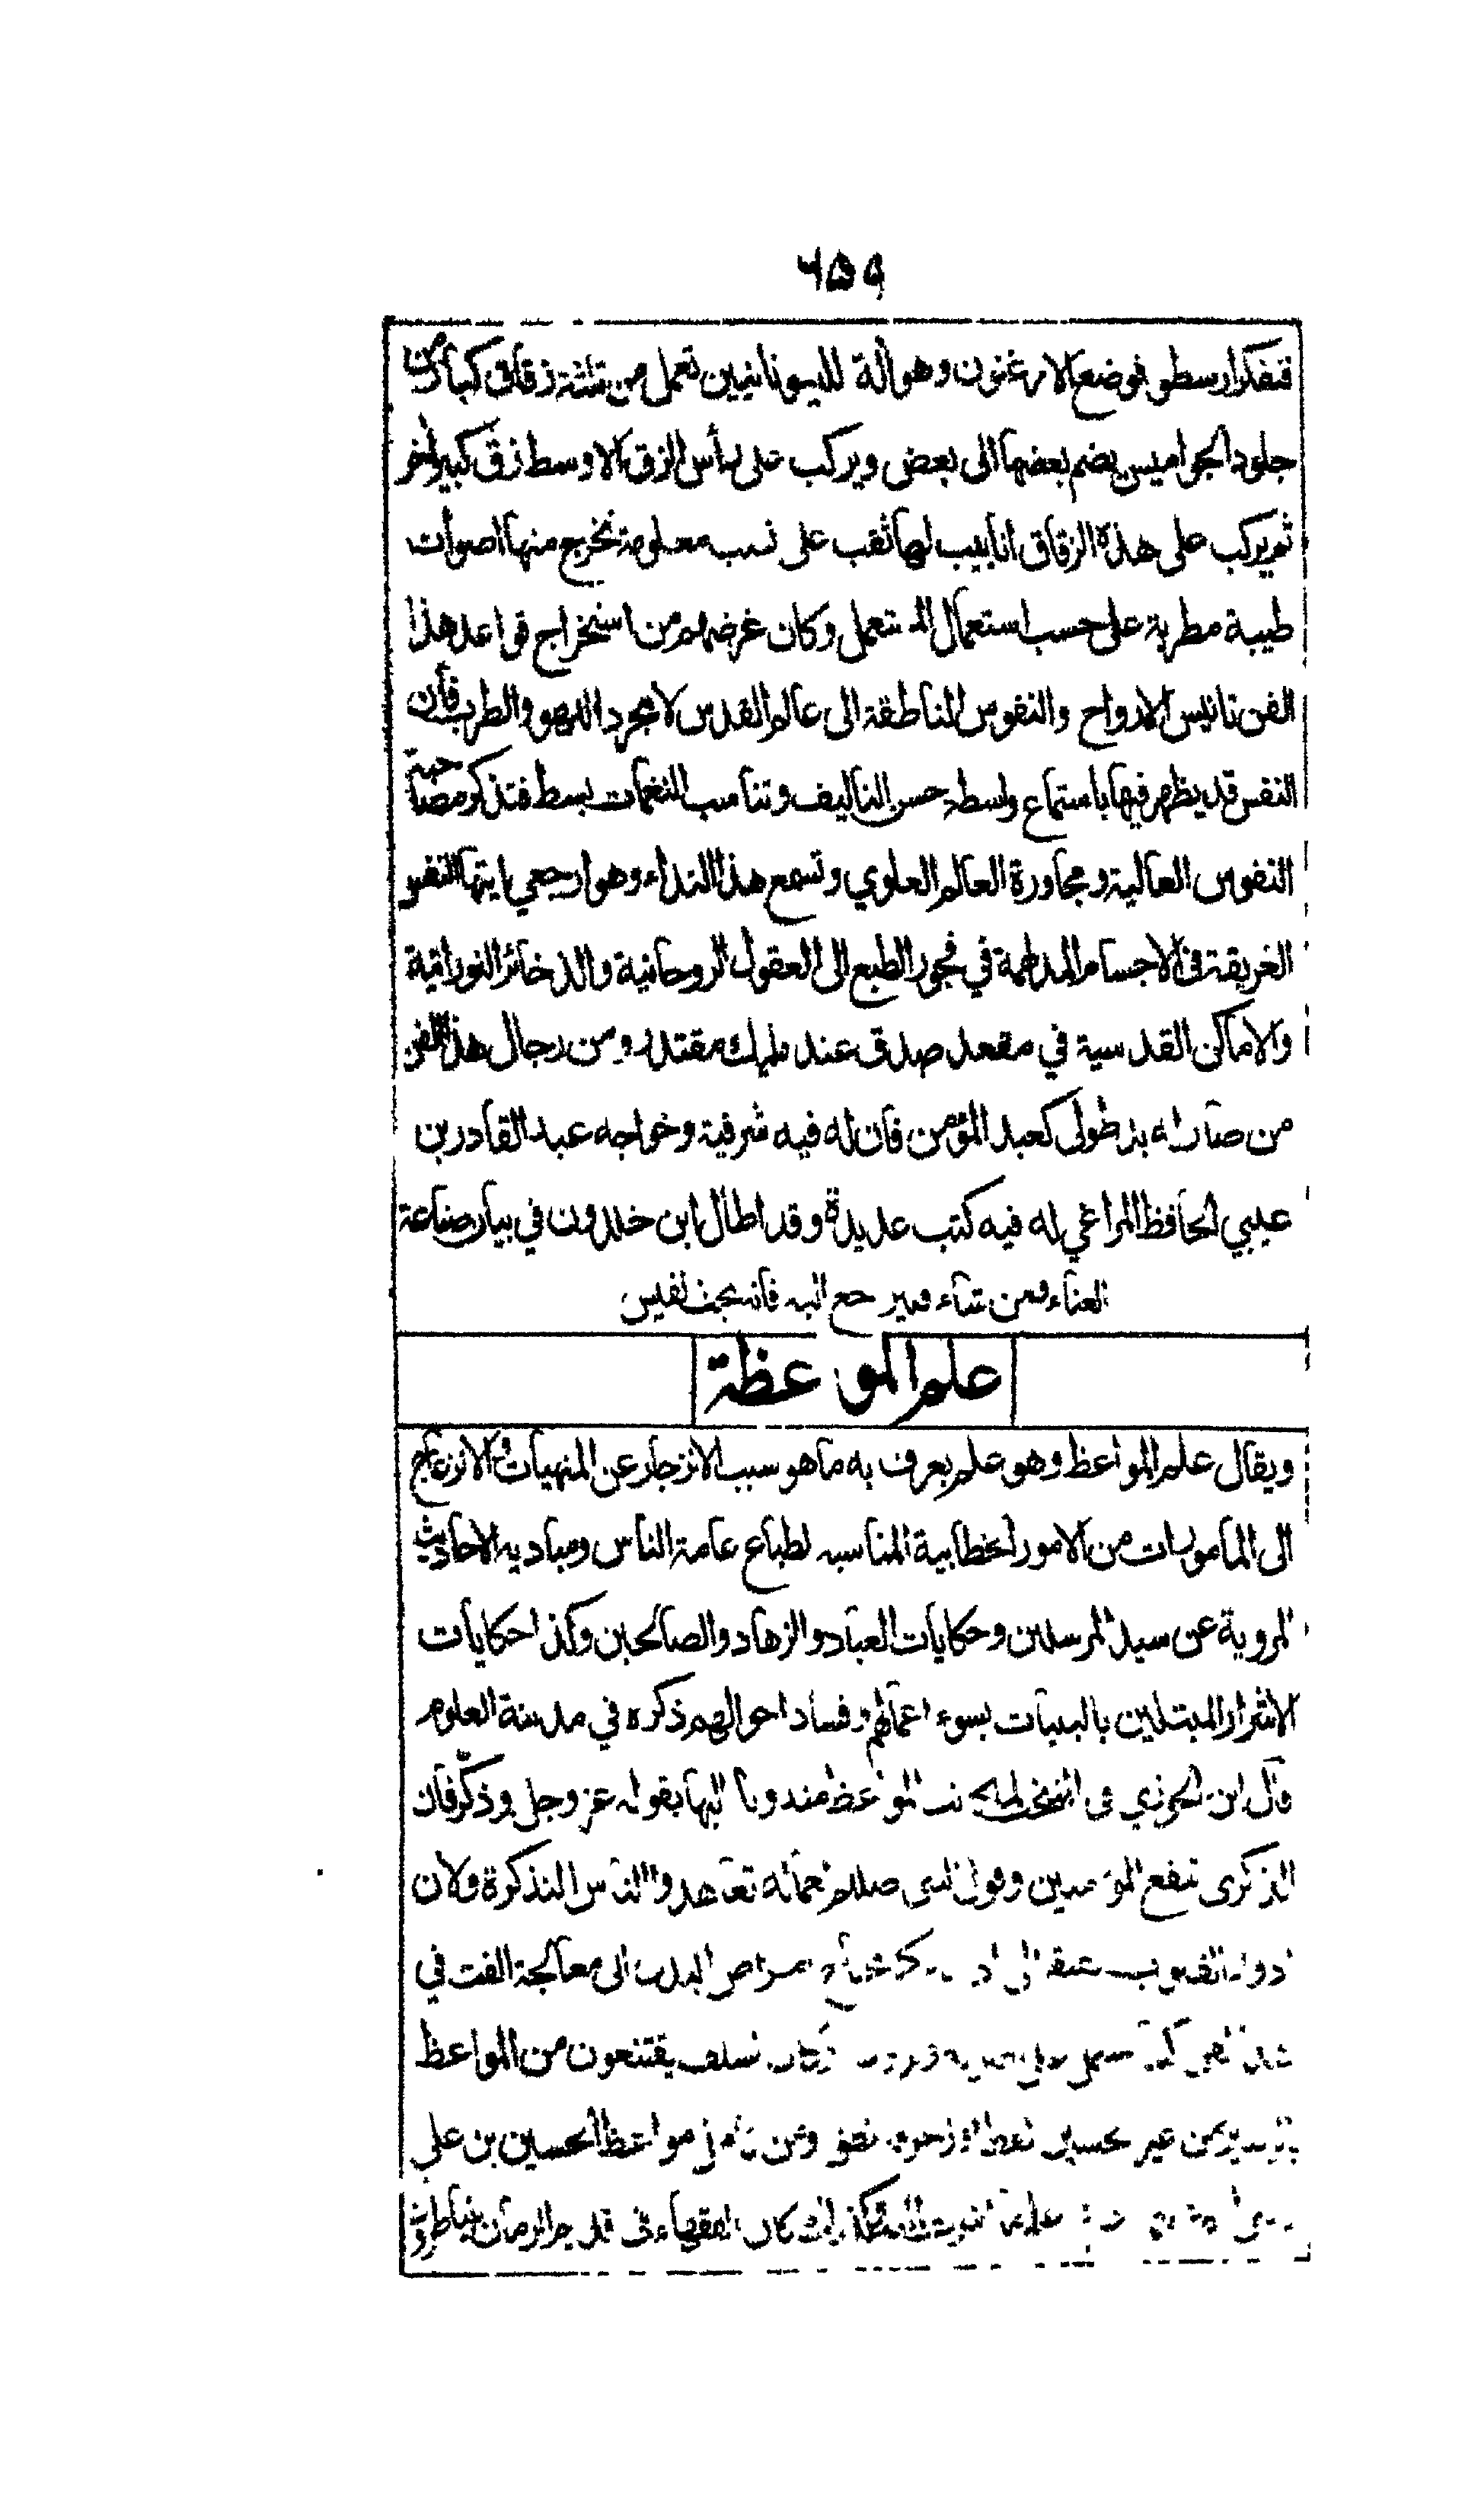 ٦٥٩
فتفكر ارسطو فوضع الارغنون وهو آلة لليونانيين تعمل من ثلثة زقاق كبار من
جلود الجواميس يضم بعضها الى بعض ويركب على رأس الزق الاوسط زق كبير آخر
ثم يركب على هذه الزقاق انابيب لها ثقب على نسب معلومة تخرج منها اصوات
طيبة مطربة على حسب استعمال المستعمل وكان غرضهم من استخراج قواعد هذا
الفن تانيس الارواح والنفوس الناطقة الى عالم القدس لا مجرد اللهو والطرب فان
النفس قد يظهر فيها باستماع واسطة حسن التاليف وتناسب النغمات بسط فتذكر مصاحبة
النفوس العالية ومجاورة العالم العلوي وتسمع هذا النداء وهو ارجعي ايتها النفس
الغريقة في الاجسام المدلهمة في فجور الطبع الى العقول الروحانية والذخائر النورانية
والاماكن القدسية في مقعد صدق عند مليك مقتدر ومن رجال هذا الفن
من صار له يد طولى كعبد المؤمن فان له فيه شرفية وخواجه عبد القادر بن
عيبي الحافظ المراغي له فيه كتب عديدة وقد اطال ابن خلدون في بيان صناعة
الغناء فمن شاء فليرجع اليه فانه بحث نفيس
علم الموعظة
ويقال علم المواعظ وهو علم يعرف به ما هو سبب الانزجار عن المنهيات والانزعاج
الى المامورات من الامور الخطابية المناسبة لطباع عامة الناس ومباديه الاحاديث
المروية عن سيد المرسلين وحكايات العباد والزهاد والصالحين وكذا حكايات
الاشرار المبتلين بالبليات بسوء اعمالهم وفساد احوالهم ذكره في مدينة العلوم
قال ابن الجوزي في المنتخب لما كانت المواعظ مندوبا اليها بقوله عز وجل وذكر فان
الذكرى تنفع المؤمنين وقول النبي صللم لعماله تعاهدوا الناس بالتذكرة ولان
ادواء القلوب تفتقر الى ادوية كما تحتاج امراض البدن الى معالجة الفت في
السلف يقتنعون من المواعظ
من غير تحسين لفظ او زخرفة نطق ومن تامل مواعظ الحسين بن علي
كان الفقهاء في قديم الزمان يتناظرون